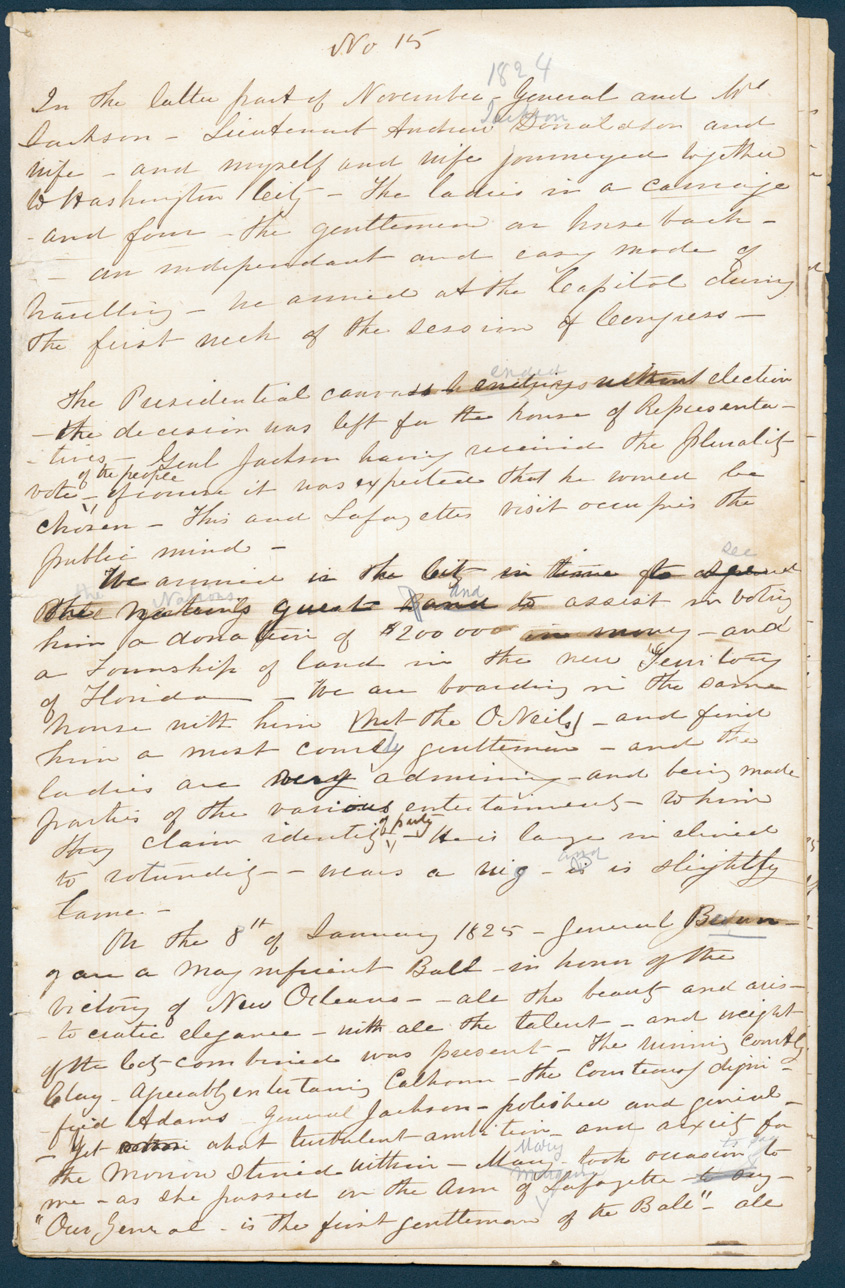 No 15
1824
In the latter part of November – General and Mrs
Jackson
Jackson – Lieutenant Andrew Donaldson and
wife – and myself and wife journeyed together
to Washington City – The ladies in a carriage
- and four – the gentlemen on horse back –
– an independant and easy mode of
travelling – we arrived at the Capitol during
the first week of the session of Congress –
ended
The Presidential canvass endings without election
– the decision was left for the house of Representa-
- tives – Genl Jackson having received the plurality
of the people
vote – of course it was expected that he would be
chosen – This and Lafayettes visit occupies the
public mind –
see
We arrived in the City in time to
the Nations and
the nations guest and to assist in voting
him a donation of $200000 in money – and
a Township of land in the new Territory
of Florida – We are boarding in the same
house with him [that the O Neils] – and find
him a most comely gentleman – and the
ladies are very admiring – and being made
parties of the various entertainments – to him
of party
they claim identity – He is large inclined
and
to rotundity – wears a wig – is is slightly
lame –
On the 8th of January 1825 – General Brown –
gave a magnificent Ball – in honor of the
victory of New Orleans – – all the beauty and aris-
- tocratic elegance – with all the talent – and weight
of the City combined was present – The winning courtly
Clay – Agreeably entertaining Calhoun – the Courteous digni-
- fyid Adams – General Jackson – polished and genial –
– Yet what turbulent ambition – and anxiety for
Mary to say
the morrow stirred within – Mary took occasion to
me – as she passed on the Arm of Lafayette – to say –
"Our General – is the first gentleman of the Ball" – all